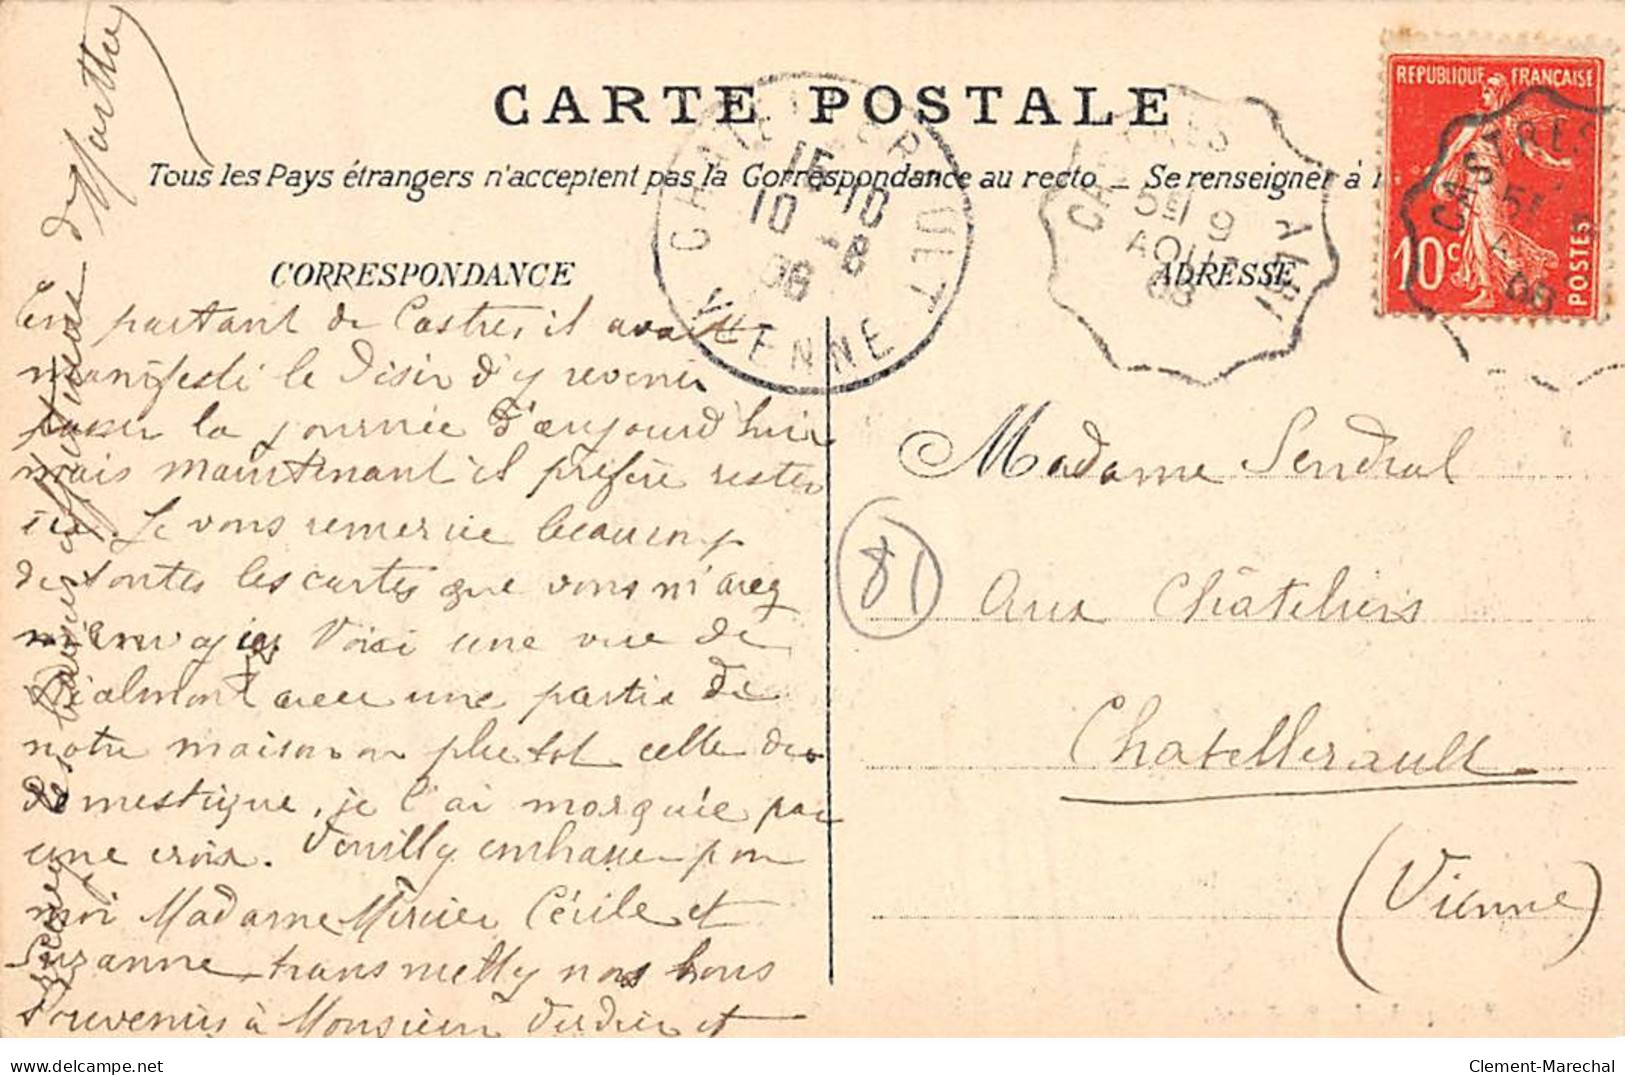 CARTE POSTALE
Tous les Pays étrangers n'acceptent pas la Correspondance au recto _ Se renseigner à
CORRESPONDANCE
ADRESSE
REPUBLIQUE FRANÇAISE
10c
POSTES
CHATELLERAULT
15-10
10 -8
08
VIENNE
CASTRES
5E 9
AOUT
08
ALBI
CASTRES
5E
08
En partant de Castres il avait
manifesté le désir d'y revenir
passer la journée d'aujourd'hui
mais maintenant il préfère rester
ici. Je vous remercie beaucoup
de toutes les cartes que vous m'avez
m'envoyées Voici une vue de
Réalmont avec une partie de
notre maison ou plutot celle du
domestique, je l'ai marquée par
une croix. Veuillez embrasser pour
moi Madame Mercier Cécile et
Suzanne, transmettez nos bons
souvenirs à Monsieur Verdier et
recevez les baisers affectueux de Marthe
Madame Sendral
Aux Châteliers
Chatellerault
(Vienne)
81
www.delcampe.net
Clement-Marechal